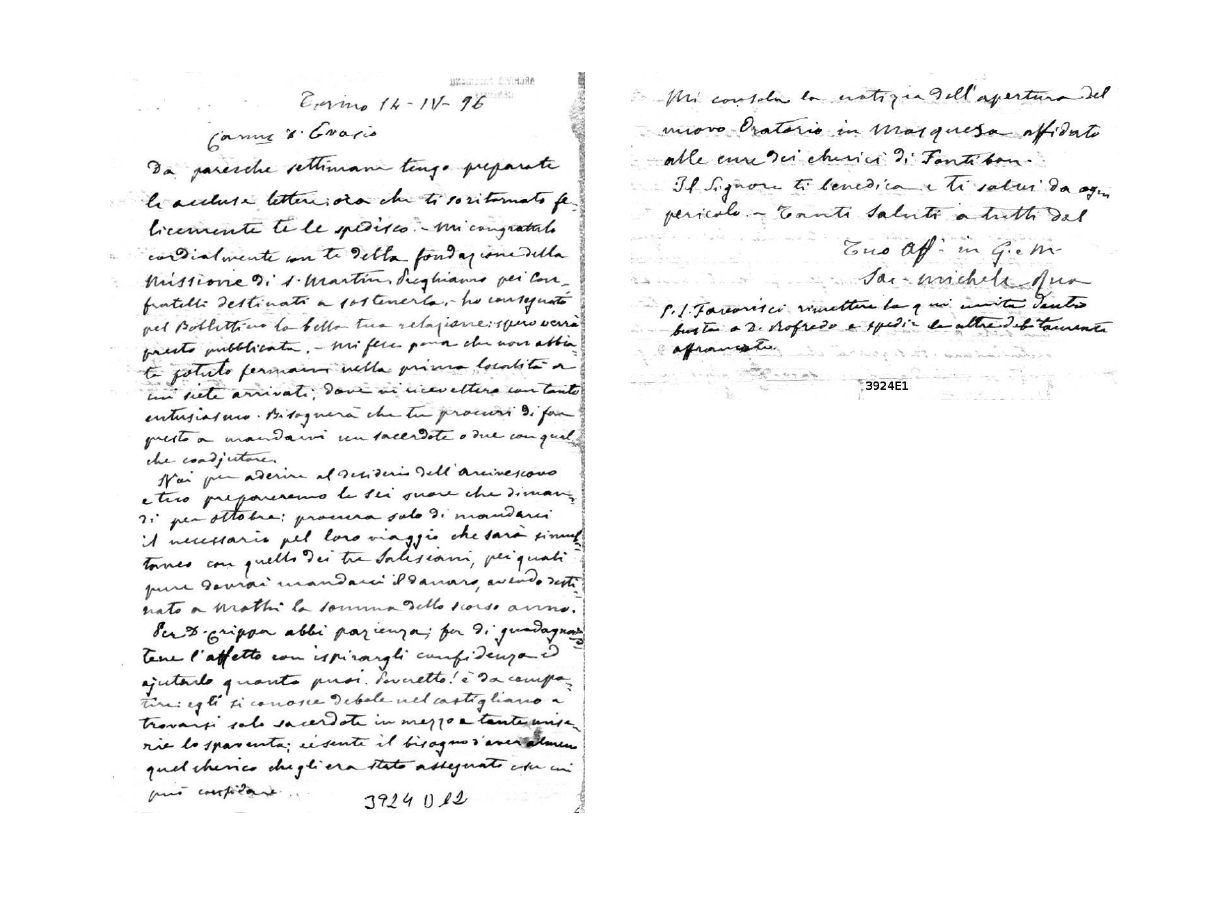 Torino 14-IV-96
Carmo d. Evasio
Da parecche settimane tengo preparate
le accluse lettere; ora che ti so ritornato fe-
licemente te le spedisco. - Mi congratulo
cordialmente con te della fondazione della
Missione di S. Martin. Preghiamo pei Con-
fratelli destinati a sostenerla. - ho consegnato
pel Bollettino la bella tua relazione: spero verrà
presto pubblicata. - Mi fece pena che non abbia-
te potuto fermarvi nella prima località a
cui siete arrivati; dove vi ricevettero con tanto
entusiasmo. Bisognerà che tu procuri di far
presto a mandarvi un sacerdote o due con qual-
che coadjutore.
Noi per aderire al desiderio dell'arcivescovo
e tuo prepareremo le sei suore che diman-
di per ottobre: procura solo di mandarci
il necessario pel loro viaggio che sarà simul-
taneo con quello dei tre Salesiani, pei quali
pure dovrai mandarci il danaro, avendo desti-
nato a Mathi la somma dello scorso anno.
Per D. Grippa abbi pazienza; fa di guadagnar-
tene l'affetto con ispirargli confidenza ed
ajutarlo quanto puoi. Poveretto! è da compa-
tire: egli si conosce debole nel castigliano e
trovarsi solo sacerdote in mezzo a tante mise-
rie lo spaventa; e sente il bisogno d'aver almen
quel cherico che gli era stato assegnato con cui
può confidare...
3924 D 12
Mi consola la notizia dell'apertura del
nuovo Oratorio in Mosquera affidato
alle cure dei cherici di Fontibon.
Il Signore ti benedica e ti salvi da ogni
pericolo. - Tanti saluti a tutti dal
Tuo Aff. in G. e M.
Sac. Michele Rua
P.S. Favorisci rimettere la qui unita dentro
busta a D. Rofredo e spedir le altre debitamente
affrancate.
3924E1